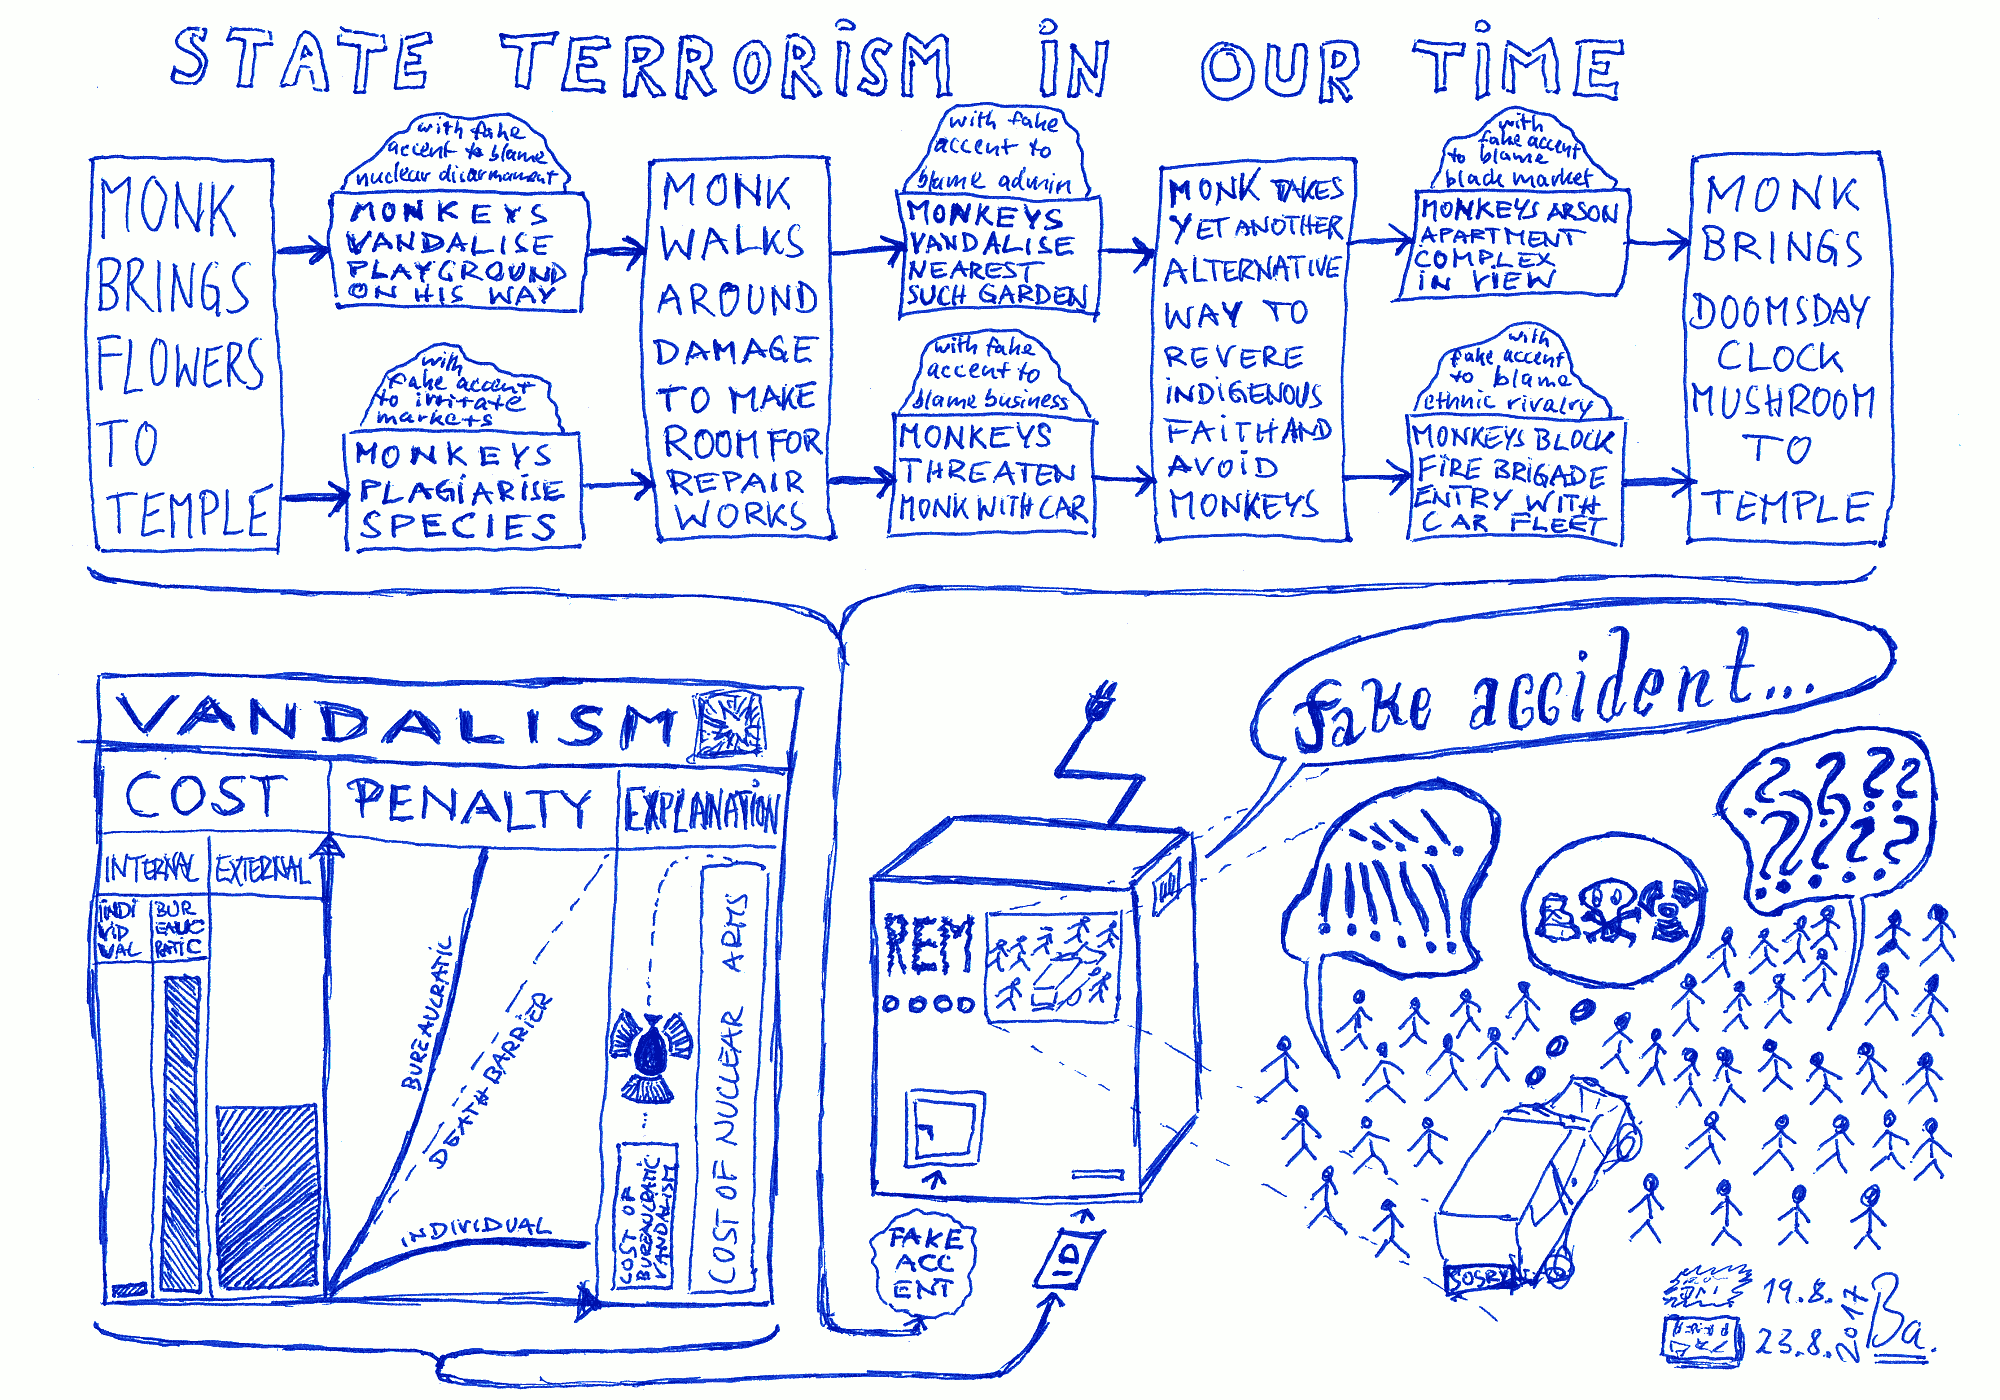 STATE TERRORiSM iN OUR TiME
MONK
BRINGS
FLOWERS
TO
TEMPLE
with fake
accent to blame
nuclear disarmament
MONKEYS
VANDALISE
PLAYGROUND
ON HIS WAY
with
fake accent
to irritate
markets
MONKEYS
PLAGIARISE
SPECIES
MONK
WALKS
AROUND
DAMAGE
TO MAKE
ROOM FOR
REPAIR
WORKS
with fake
accent to
blame admin
MONKEYS
VANDALISE
NEAREST
SUCH GARDEN
with fake
accent to
blame business
MONKEYS
THREATEN
MONK WITH CAR
MONK TAKES
YET ANOTHER
ALTERNATIVE
WAY TO
REVERE
INDIGENOUS
FAITH AND
AVOID
MONKEYS
with
fake accent
to blame
black market
MONKEYS ARSON
APARTMENT
COMPLEX
IN VIEW
with
fake accent
to blame
ethnic rivalry
MONKEYS BLOCK
FIRE BRIGADE
ENTRY WITH
CAR FLEET
MONK
BRINGS
DOOMSDAY
CLOCK
MUSHROOM
TO
TEMPLE
VANDALISM
COST
PENALTY
EXPLANATION
INTERNAL
EXTERNAL
INDI
VID
UAL
BUR
EAUC
RATIC
BUREAUCRATIC
DEATH BARRIER
INDIVIDUAL
COST OF
BUREAUCRATIC
VANDALISM
COST OF NUCLEAR ARMS
REM
FAKE
ACC
ENT
ID
fake accident...
!!!!!
!!!!!!
????
????
19.8.
23.8.
2017
Ba.